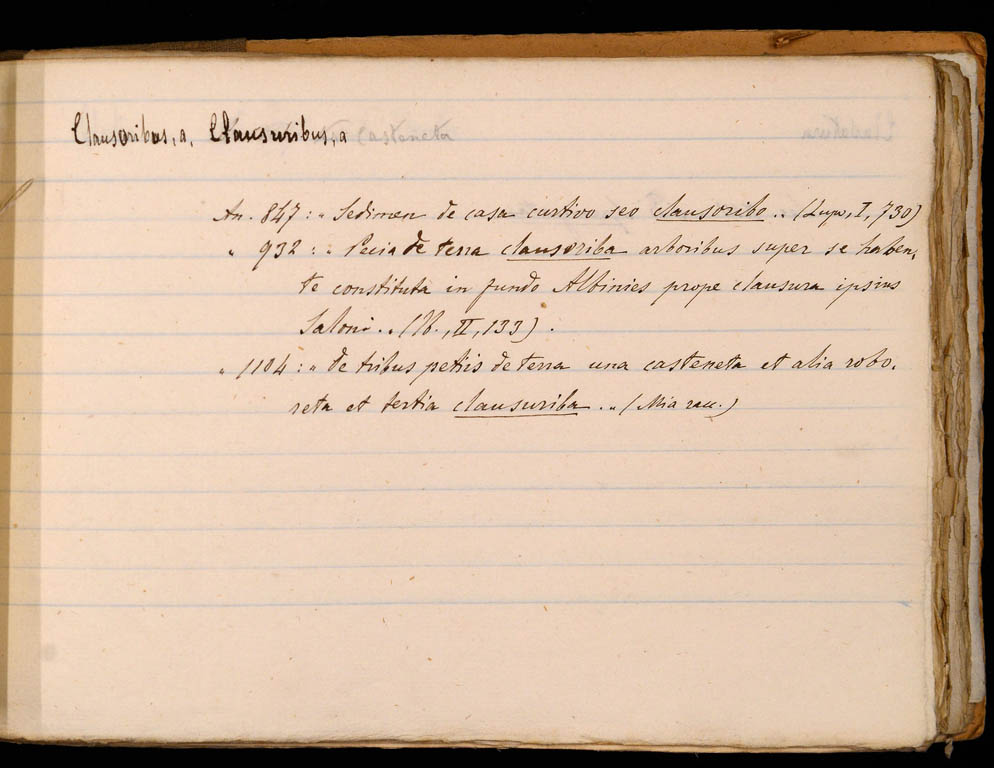 Clausoribus, a, Clausuribus, a
An. 847: „ Sedimen de casa curtivo seo clausoribo „ (Lupo, I, 730)
„ 932: „ Pecia de terra clausoriba arboribus super se haben,
te constituta in fundo Albinies prope clausura ipsius
Saloni „ (Ib., II, 133).
„ 1184: „ de tribus petiis de terra una casteneta et alia robo,
reta et tertia clausuriba „ (Mia racc.)